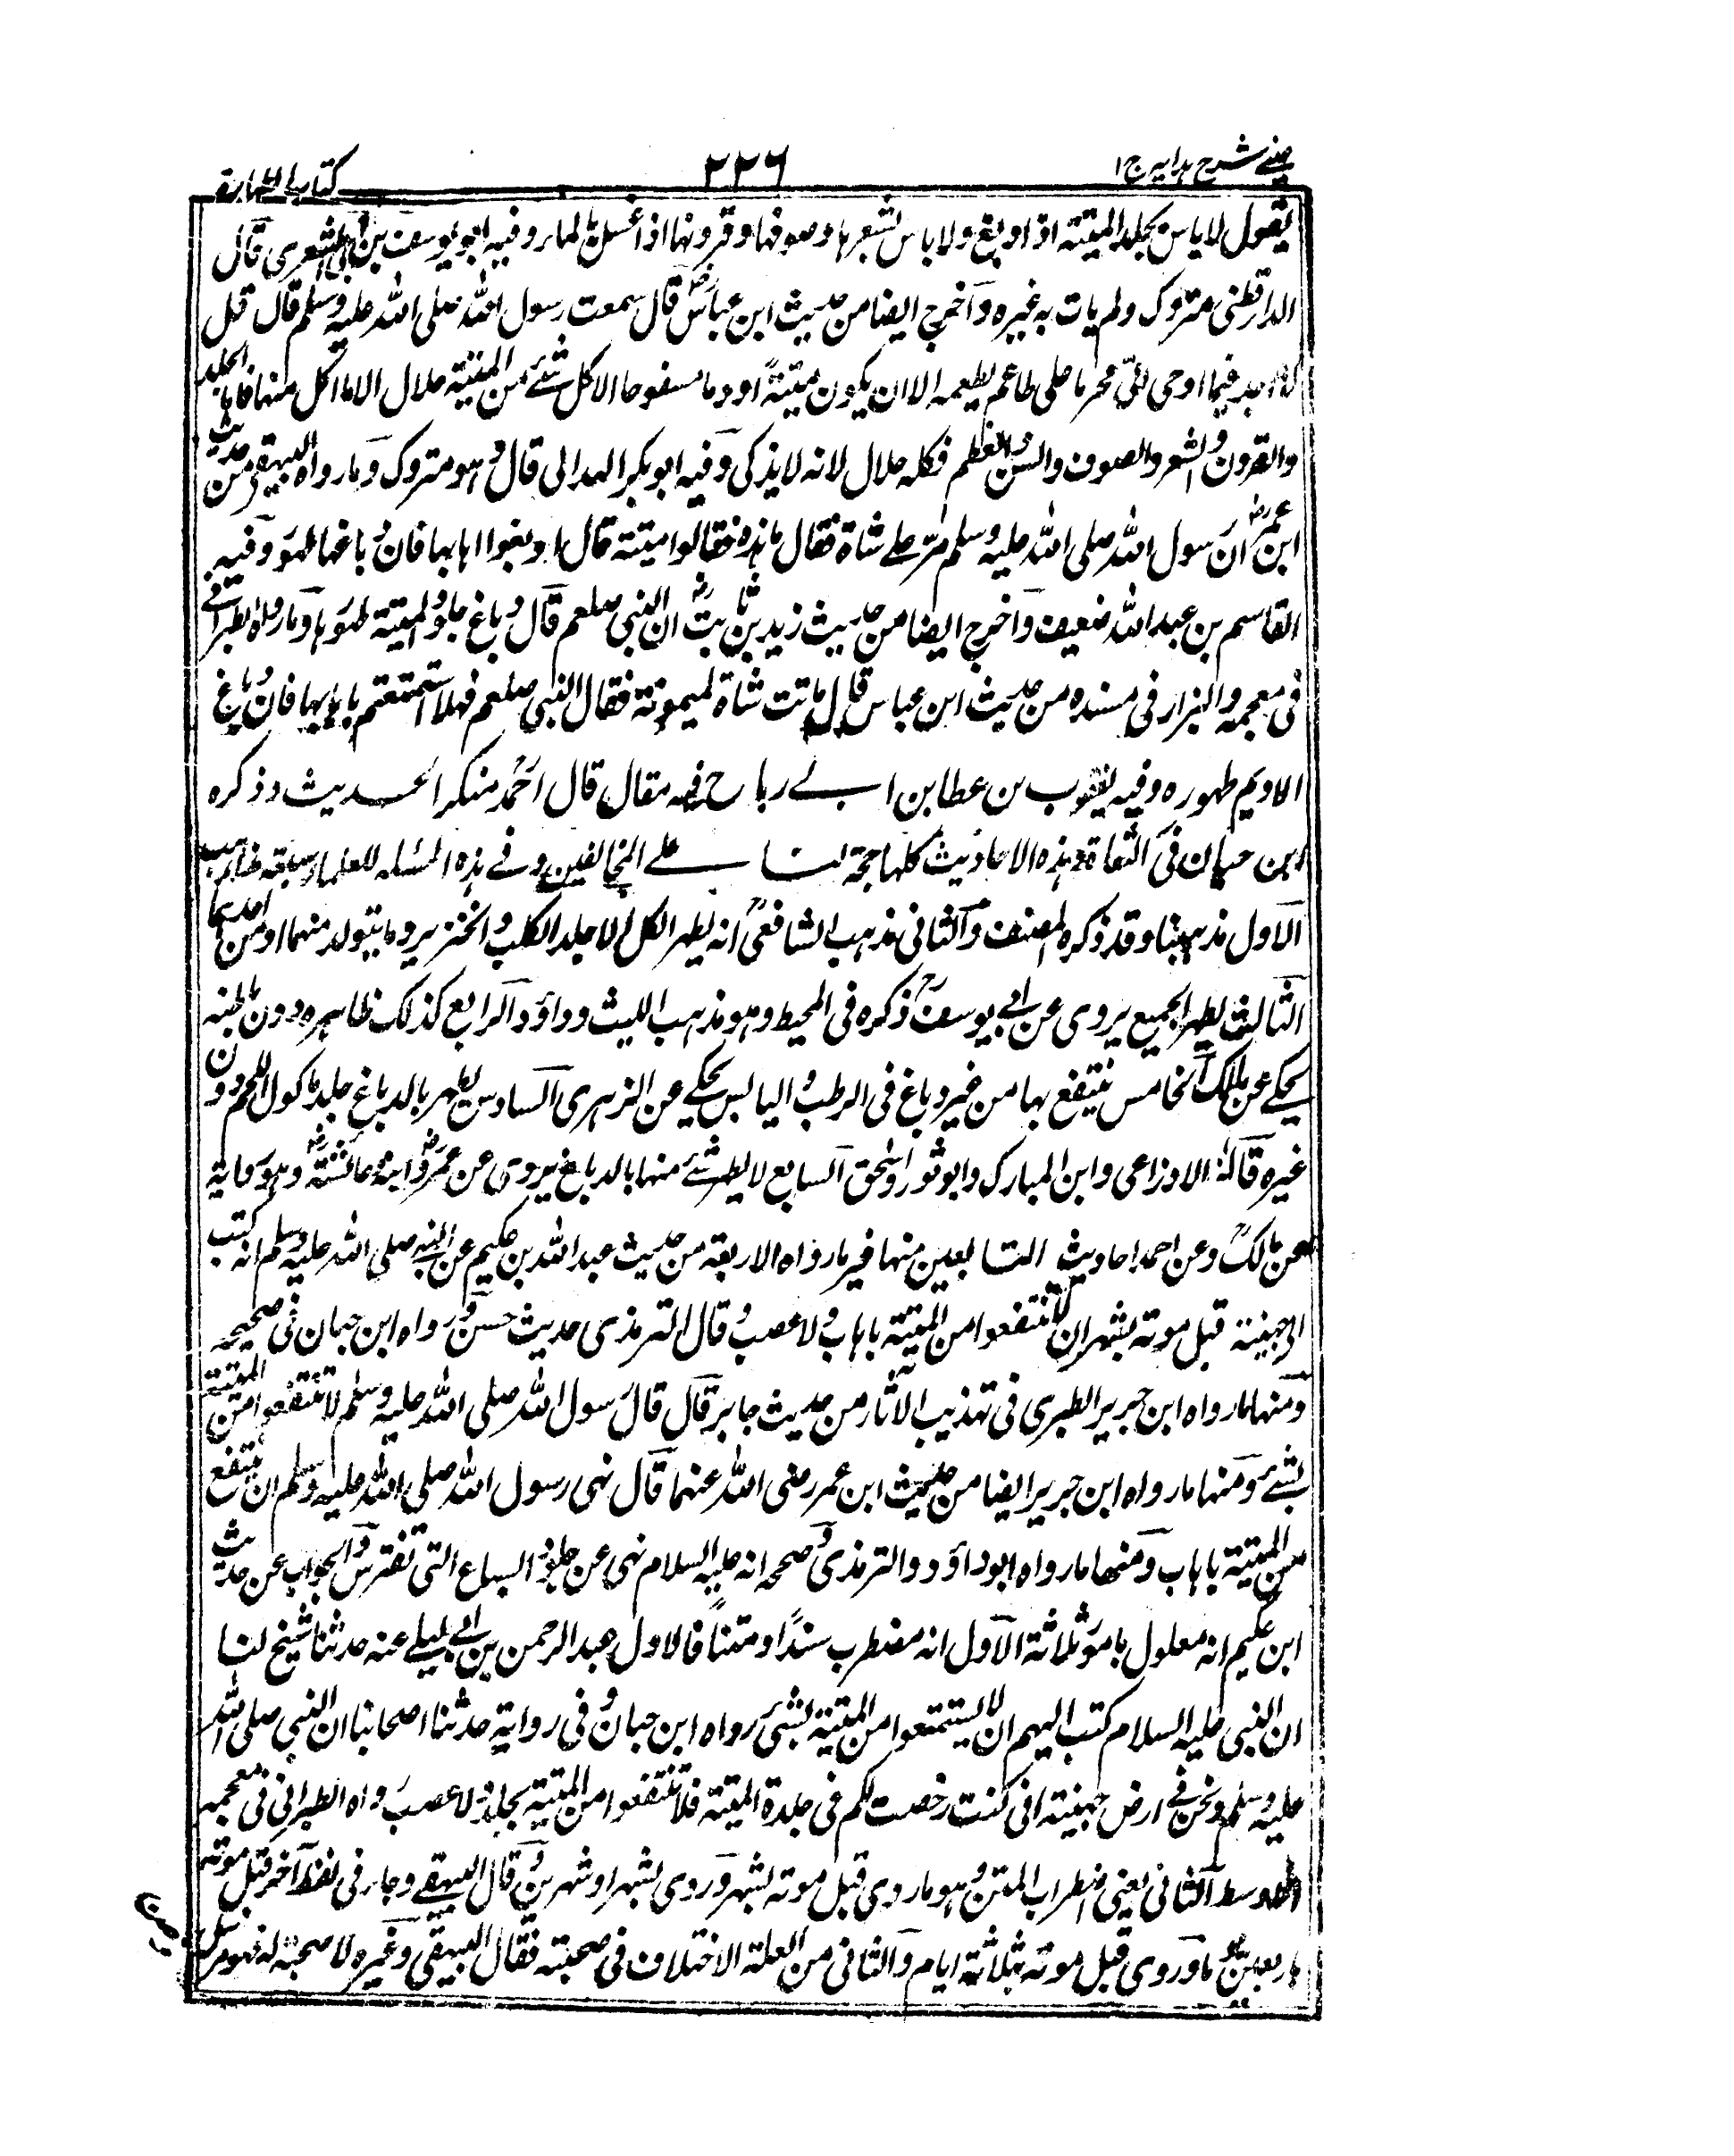 عينى شرح هدايه ج ١
٢٢٦
كتاب الطهارة
يقول لا باس بجلد الميتة اذا دبغ ولا باس بشعرها وصوفها وقرونها اذا غسل بالماء وفيه ابو يوسف بن ابى الشعرى قال
الدارقطنى متروك ولم يات به غيره وآخرج ايضا من حديث ابن عباسؓ قال سمعت رسول الله صلى الله عليه وسلم قال قل
لا اجد فيما اوحى الىّ محرما على طاعم يطعمه الا ان يكون ميتةً او دما مسفوحا الا كل شئ من الميتة حلال الا ما اكل منها فاما الجلد
والقرون والشعر والصوف والسن والعظم فكله حلال لانه لا يذكى وفيه ابو بكر الهدالى قال هو متروك وما رواه البيهقى من حديث
ابن عمرؓ ان رسول الله صلى الله عليه وسلم مرّ على شاة فقال ما هذه فقالوا ميتة قال ادبغوا اهابها فان دباغها طهوره وفيه
القاسم بن عبد الله ضعيف وآخرج ايضا من حديث زيد بن ثابتؓ ان النبى صلعم قال دباغ جلود الميتة طهورها وما رواه الطبرانى
فى معجمه والبزار فى مسنده من حديث ابن عباس قال ماتت شاة لميمونة فقال النبى صلعم فهلا استمتعتم باهابها فان دباغ
الاديم طهوره وفيه يعقوب بن عطا بن ابى رباح فيه مقال قال احمدؒ منكر الحديث وذكره
ابن حبان فى الثقاة وهذه الاحاديث كلها حجة لنا على المخالفين وفى هذه المسئله للعلماء سبعة مذاهب
الاول مذهبنا وقد ذكره المصنف والثانى مذهب الشافعىؒ انه يطهر الكل الا جلد الكلب والخنزير وما يتولد منهما او من احدهما
الثالث يطهر الجميع يروى عن ابى يوسفؒ ذكره فى المحيط وهو مذهب الليث وداؤد الرابع كذلك ظاهره دون باطنه
يحكى عن مالك الخامس ينتفع بها من غير دباغ فى الرطب واليابس يحكى عن الزهرى السادس يطهر بالدباغ جلد ماكول اللحم دون
غيره قاله الاوزاعى وابن المبارك وابو ثور واسحق السابع لا يطهر شئ منها بالدباغ يروى عن عمرؓ وابنه وعائشةؓ وهو رواية
عن مالكؒ وعن احمد احاديث التابعين منها خبر ما رواه الاربعة من حديث عبد الله بن عكيم عن النبى صلى الله عليه وسلم انه كتب
الى جهينة قبل موته بشهر ان لا تنتفعوا من الميتة باهاب ولا عصب وقال الترمذى حديث حسن ورواه ابن حبان فى صحيحه
ومنها ما رواه ابن جرير الطبرى فى تهذيب الآثار من حديث جابر قال قال رسول الله صلى الله عليه وسلم لا تنتفعوا من الميتة
بشئ ومنها ما رواه ابن جرير ايضا من حديث ابن عمر رضى الله عنهما قال نهى رسول الله صلى الله عليه وسلم ان ينتفع
من الميتة باهاب ومنها ما رواه ابو داؤد والترمذى وصححه انه عليه السلام نهى عن جلود السباع التى تفترش والجواب عن حديث
ابن عكيم انه معلول بامور ثلاثة الاول انه مضطرب سندًا ومتنًا فالاول عبد الرحمن بن ابى ليلى عنه حدثنا شيخ لنا
ان النبى عليه السلام كتب اليهم ان لا يستمتعوا من الميتة بشئ رواه ابن حبان وفى رواية حدثنا اصحابنا ان النبى صلى الله
عليه وسلم ونحن فى ارض جهينة انى كنت رخصت لكم فى جلدة الميتة فلا تنتفعوا من الميتة بجلد ولا عصب رواه الطبرانى فى معجمه
الاوسط الثانى يعنى اضطراب المتن وهو ما روى قبل موته بشهر وروى بشهر او شهرين وقال البيهقى وجاء فى لفظ آخر قبل موته
باربعين يوما وروى قبل موته بثلاثة ايام والثانى من العلة الاختلاف فى صحبته فقال البيهقى وغيره لا صحبة له فهو مرسل
ومن